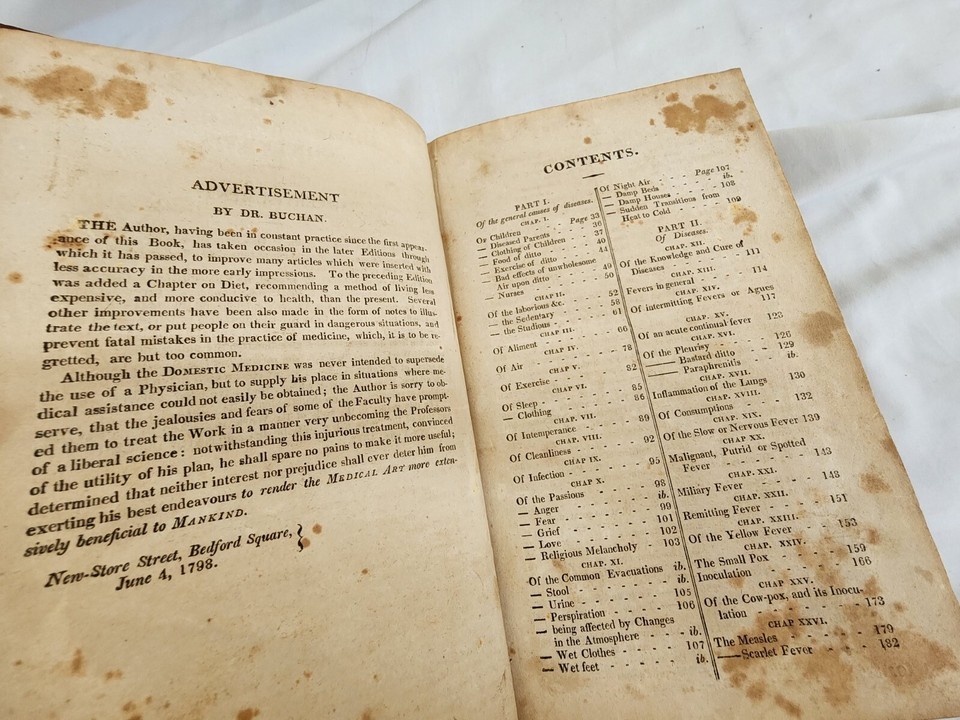 ADVERTISEMENT
BY DR. BUCHAN.
THE Author, having been in constant practice since the first appear-
ance of this Book, has taken occasion in the later Editions through
which it has passed, to improve many articles which were inserted with
less accuracy in the more early impressions. To the preceding Edition
was added a Chapter on Diet, recommending a method of living less
expensive, and more conducive to health, than the present. Several
other improvements have been also made in the form of notes to illus-
trate the text, or put people on their guard in dangerous situations, and
prevent fatal mistakes in the practice of medicine, which, it is to be re-
gretted, are but too common.
Although the DOMESTIC MEDICINE was never intended to supersede
the use of a Physician, but to supply his place in situations where me-
dical assistance could not easily be obtained; the Author is sorry to ob-
serve, that the jealousies and fears of some of the Faculty have prompt-
ed them to treat the Work in a manner very unbecoming the Professors
of a liberal science: notwithstanding this injurious treatment, convinced
of the utility of his plan, he shall spare no pains to make it more useful;
determined that neither interest nor prejudice shall ever deter him from
exerting his best endeavours to render the MEDICAL ART more exten-
sively beneficial to MANKIND.
New-Store Street, Bedford Square, }
June 4, 1798.
CONTENTS.
PART I.
Of the general causes of diseases.
CHAP. I.
Of Children - - Page 33
— Diseased Parents - - 36
— Clothing of Children - - 37
— Food of ditto - - 40
— Exercise of ditto - - 44
— Bad effects of unwholesome
Air upon ditto - - 49
— Nurses - - 50
CHAP II.
Of the laborious &c. - - 52
— the Sedentary - - 58
— the Studious - - 61
CHAP III.
Of Aliment - - 66
CHAP IV.
Of Air - - 78
CHAP V.
Of Exercise - - 82
CHAP VI.
Of Sleep - - 85
— Clothing - - 86
CHAP. VII.
Of Intemperance - - 89
CHAP. VIII.
Of Cleanliness - - 92
CHAP IX.
Of Infection - - 95
CHAP X.
Of the Passions - - 98
— Anger - - ib.
— Fear - - 99
— Grief - - 101
— Love - - 102
— Religious Melancholy - 103
CHAP. XI.
Of the Common Evacuations ib.
— Stool - - ib.
— Urine - - 105
— Perspiration - - 106
— being affected by Changes
in the Atmosphere - - ib.
— Wet Clothes - - 107
— Wet feet - - ib.
Of Night Air - - Page 107
— Damp Beds - - ib.
— Damp Houses - - 108
— Sudden Transitions from
Heat to Cold - - 109
PART II.
Of Diseases.
CHAP. XII.
Of the Knowledge and Cure of
Diseases - - 111
CHAP. XIII.
Fevers in general - - 114
CHAP. XIV.
Of intermitting Fevers or Agues
117
CHAP. XV.
Of an acute continual fever 123
CHAP. XVI.
Of the Pleurisy - - 126
—— Bastard ditto - - 129
—— Paraphrenitis - - ib.
CHAP. XVII.
Inflammation of the Lungs 130
CHAP. XVIII.
Of Consumptions - - 132
CHAP. XIX.
Of the Slow or Nervous Fever 139
CHAP XX.
Malignant, Putrid or Spotted
Fever - - 143
CHAP. XXI.
Miliary Fever - - 148
CHAP. XXII.
Remitting Fever - - 151
CHAP. XXIII.
Of the Yellow Fever - - 153
CHAP. XXIV.
The Small Pox - - 159
Inoculation - - 166
CHAP XXV.
Of the Cow-pox, and its Inocu-
lation - - 173
CHAP XXVI.
The Measles - - 179
——Scarlet Fever - - 182